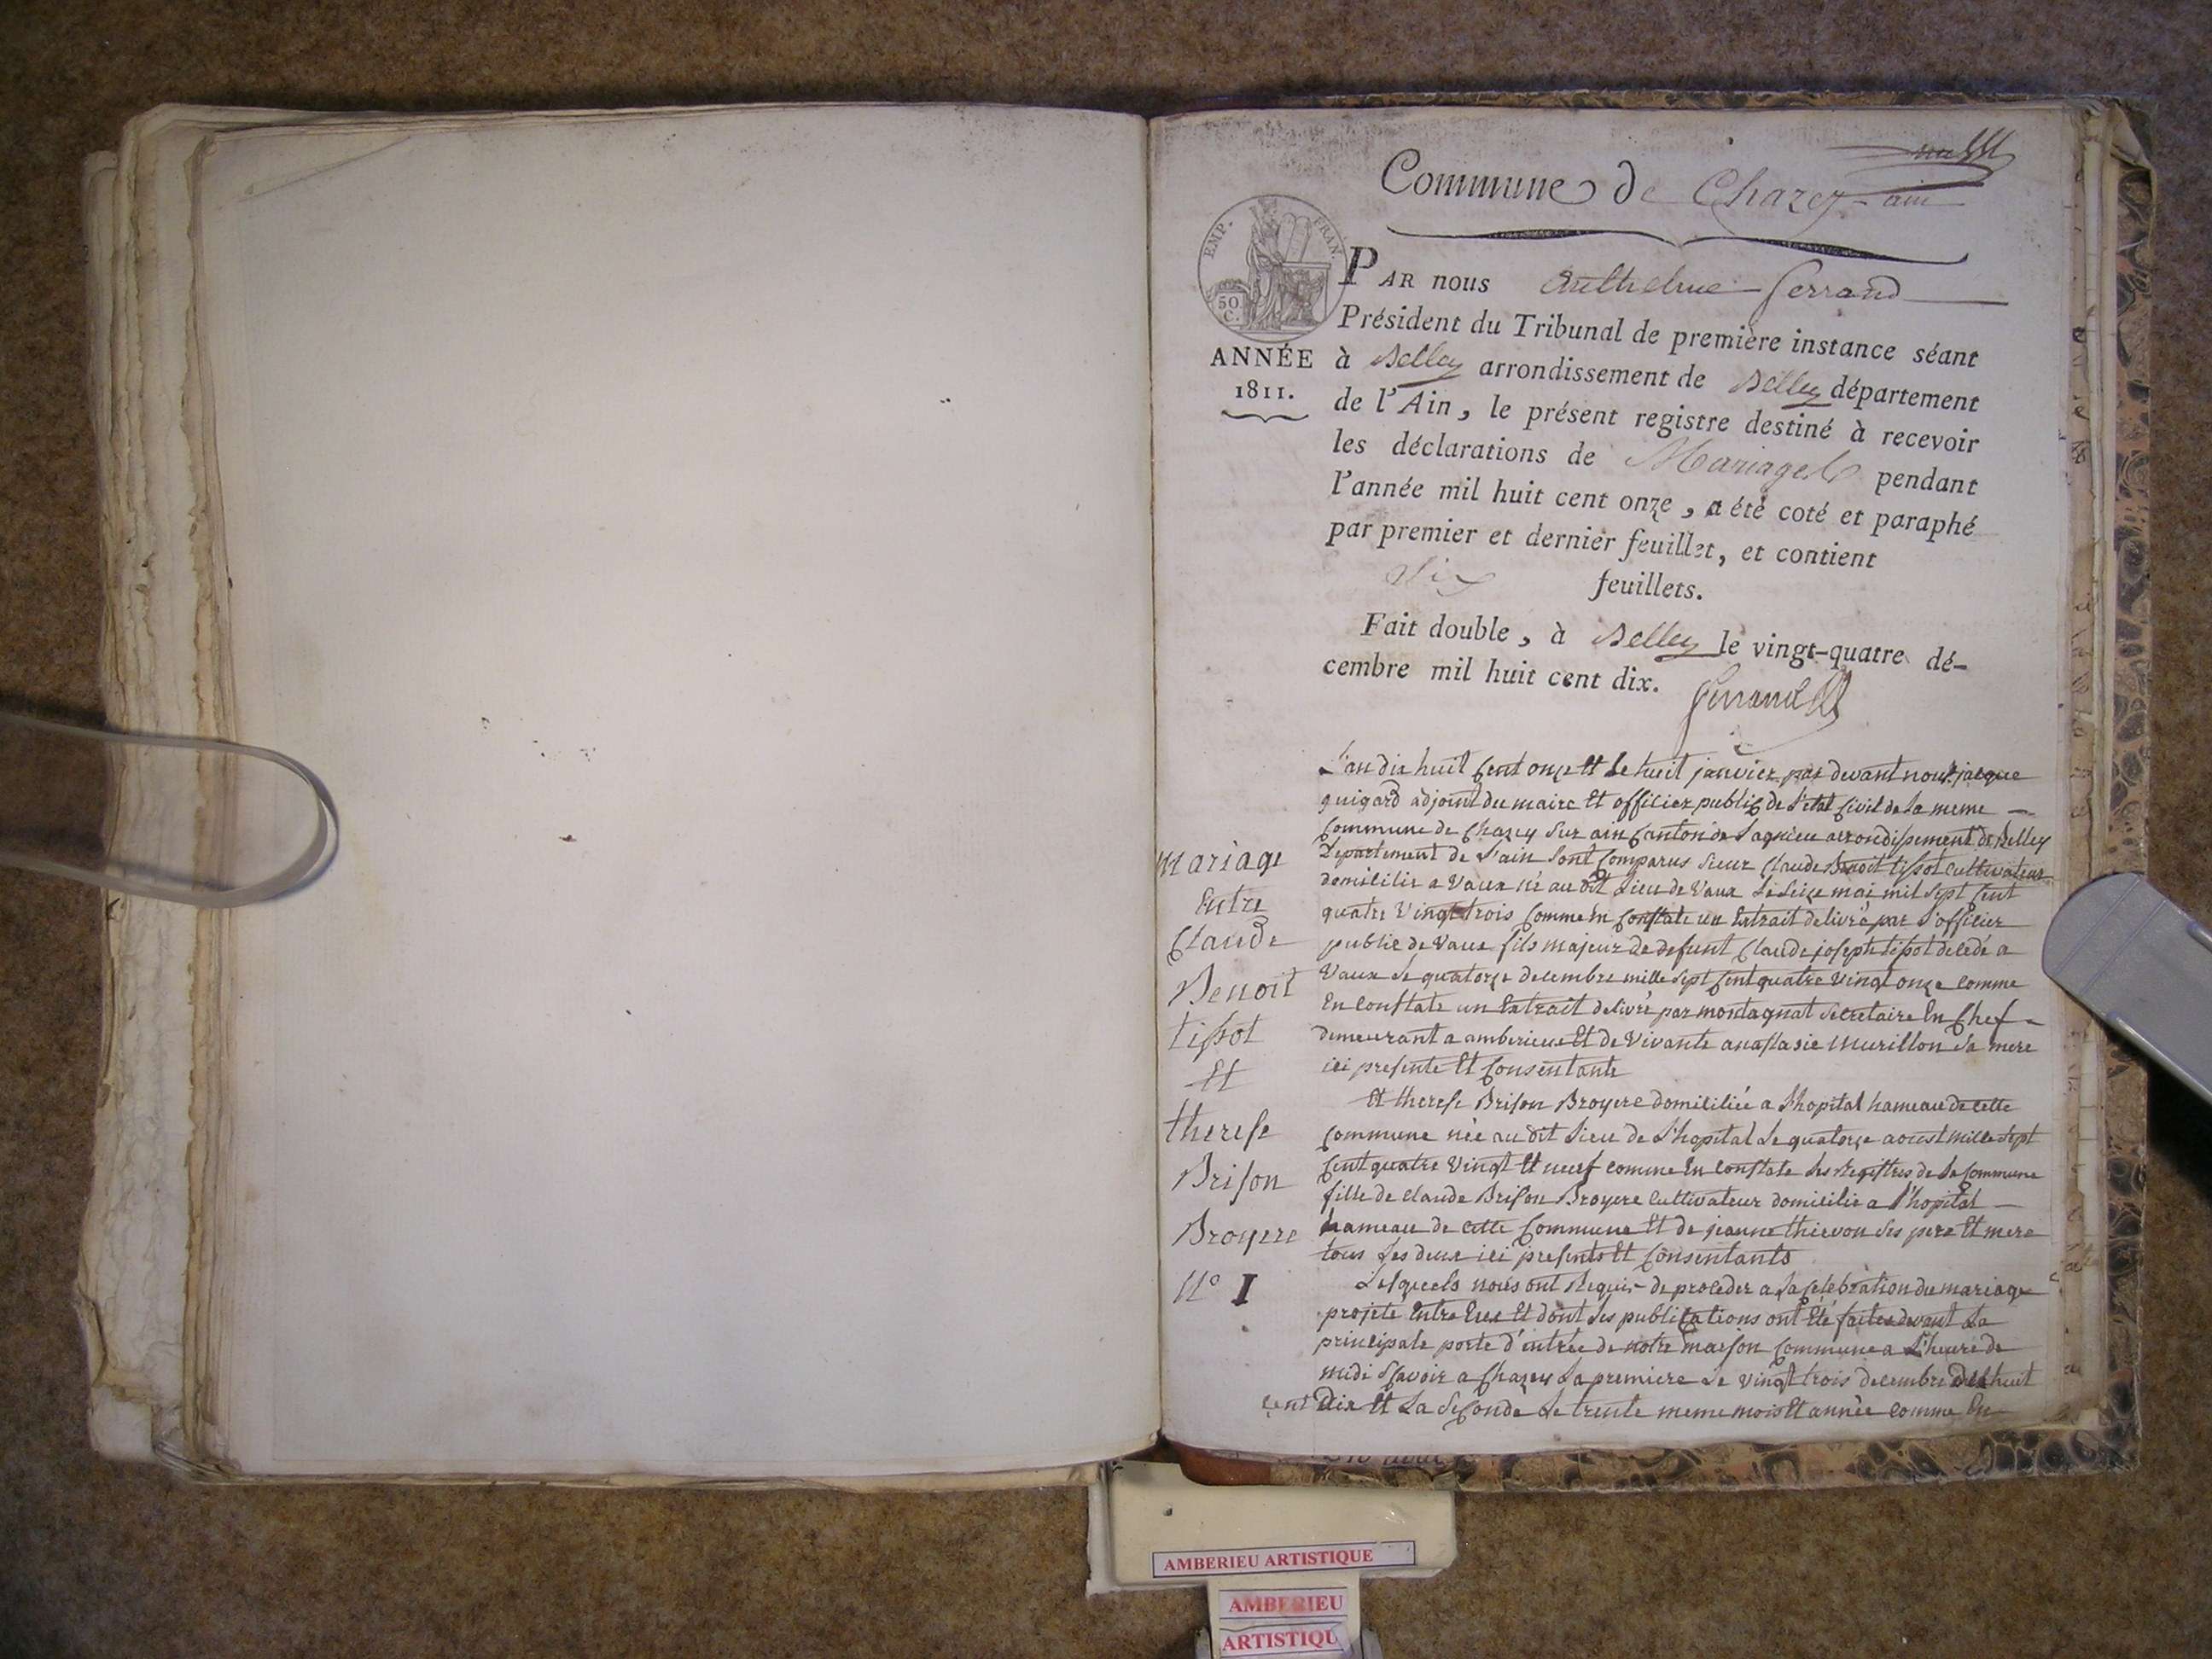 Commune de Chazey-ain
EMP. FRAN.
50
C.
PAR nous Anthelme Ferrand
Président du Tribunal de première instance séant
ANNÉE
1811.
à Belley arrondissement de Belley département
de l'Ain, le présent registre destiné à recevoir
les déclarations de Mariages pendant
l'année mil huit cent onze, a été coté et paraphé
par premier et dernier feuillet, et contient
six feuillets.
Fait double, à Belley le vingt-quatre dé-
cembre mil huit cent dix. Ferrand
Mariage
Entre
Claude
Benoit
tissot
Et
therese
Brison
Broyere
N° 1
L'an dix huit Cent onze Et Le huit janvier par devant nous jacque
guigard adjoint du maire Et officier public de L'etat Civil de La meme
Commune de Chazey Sur ain Canton de Lagnieu arrondissement de Belley
Departement de L'ain Sont Comparus Sieur Claude Benoit tissot Cultivateur
domicilie a Vaux né au dit Lieu de Vaux Le Seize mai mil Sept Cent
quatre Vingt trois Comme En Constate un Extrait delivré par L'officier
public de Vaux fils majeur de defunt Claude joseph tissot decedé a
Vaux Le quatorze decembre mille Sept Cent quatre Vingt onze comme
En Constate un Extrait delivré par montagnat Secretaire En Chef
demeurant a amberieux Et de Vivante anastasie Murillon Sa mere
ici presente Et Consentante
Et therese Brison Broyere domiciliée a L'hopital hameau de cette
Commune née au dit Lieu de L'hopital Le quatorze aoust mille Sept
Cent quatre Vingt Et neuf comme En Constate Les Registres de La Commune
fille de Claude Brison Broyere Cultivateur domicilie a L'hopital
hameau de cette Commune Et de jeanne thievon Ses pere Et mere
tous Les deux ici presents Et Consentants
Lesquels nous ont Requis de proceder a La Celebration du mariage
projeté Entre Eux Et dont Les publications ont Eté faites devant La
principale porte d'entrée de notre maison Commune a L'heure de
midi Scavoir a Chazey La premiere Le Vingt trois decembre dix huit
Cent Dix Et La Seconde Le trente meme mois Et année comme En
AMBERIEU ARTISTIQUE
AMBERIEU
ARTISTIQU